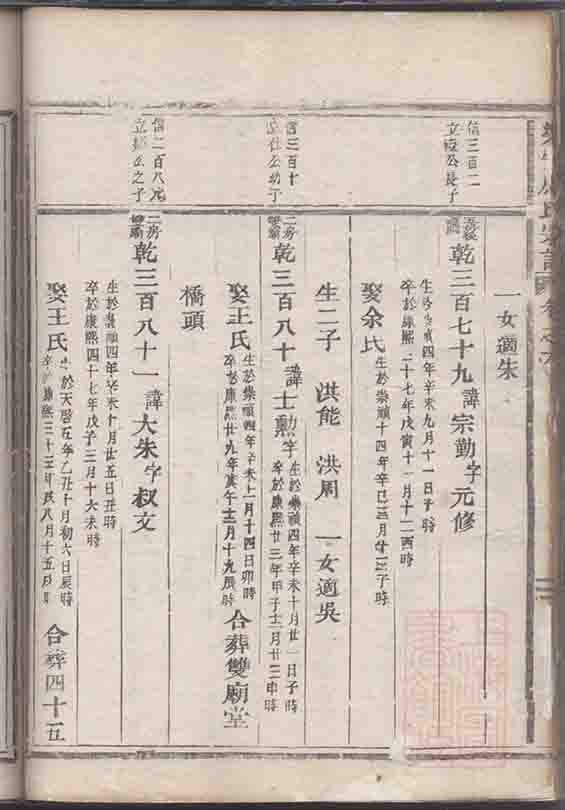 一女適朱
信三百二
立 公長子
乾三百七十九 諱宗勤 字元修
生於崇禎四年辛未九月十一日子時
卒於康熙三十七年戊寅十一月十二酉時
娶余氏 生於崇禎十四年辛巳三月廿一子時
生二子 洪能 洪周 一女適吳
信三百十
立仕公幼子
二房 乾三百八十 諱士勲 字
生於崇禎四年辛未十月廿一日子時
卒於康熙廿三年甲子十二月廿三申時
娶王氏 生於崇禎四年辛未十一月十四日卯時
卒於康熙廿九年庚午十二月十九辰時 合葬雙廟堂
橋頭
信二百八九
立 公之子
二房 乾三百八十一 諱大朱 字叔文
生於崇禎四年辛未十月廿五日丑時
卒於康熙四十七年戊子三月十六未時
娶王氏 生於天啓五年乙丑十月初六日辰時
卒於康熙三十三年 八月十五 時 合葬四十五